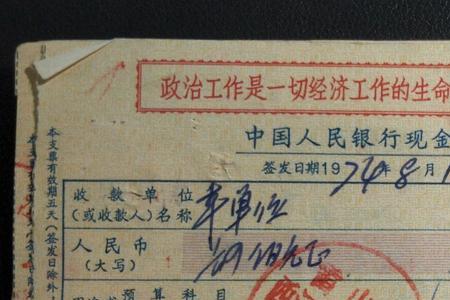 政治工作是一切经济工作的生命
中国人民银行现金
签发日期1974年8月1
收款单位
(或收款人)名称
本单位
人民币
(大写)
预算科目
本支票有效期五天(签发日除外